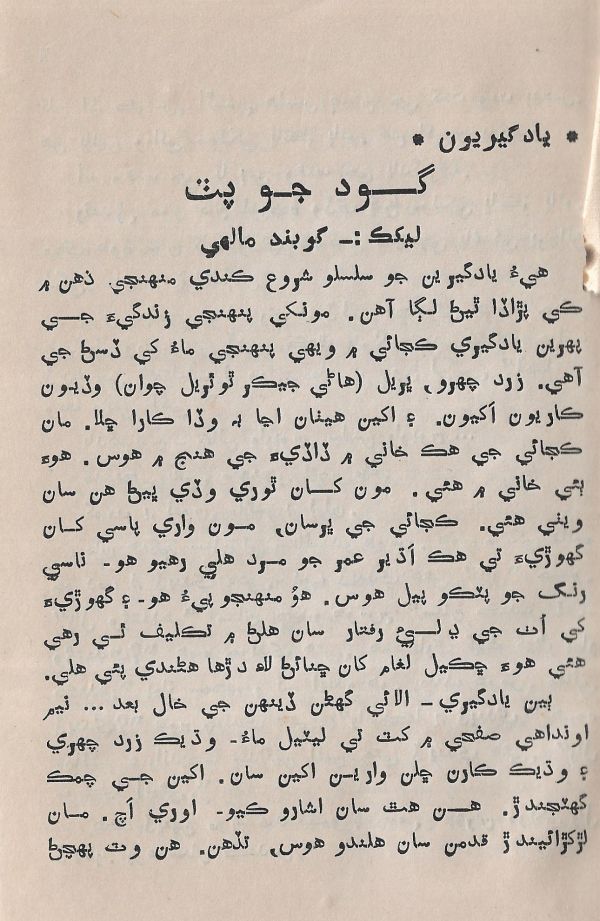 * يادگيريون *
گود جو پٽ
ليکڪ :ـ گوبند مالهي
هيءُ يادگيرين جو سلسلو شروع ڪندي منهنجي ذهن ۾
ڪي پڙاڏا ٿيڻ لڳا آهن. مونکي پنهنجي زندگيءَ جي
پهرين يادگيري ڪجائي ۾ ويهي پنهنجي ماءُ کي ڏسڻ جي
آهي. زرد چهرو، ڀريل (هاڻي جيڪر ٿوٿريل چوان) وڏيون
ڪاريون اکيون. ۽ اکين هيٺان اڃا به وڏا ڪارا ڇلا. مان
ڪجائي جي هڪ خاني ۾ ڏاڏيءَ جي هنج ۾ هوس. هوءَ
ٻئي خاني ۾ هئي. مون کان ٿوري وڏي ڀيڻ هن سان
ويٺي هئي. ڪجائي جي ڀرسان، مون واري پاسي کان
گهوڙيءَ تي هڪ اڌيڙ عمر جو مرد هلي رهيو هو ـ ناسي
رنگ جو پٽڪو ٻيل هوس. هوُ منهنجو پيءُ هو ـ ۽ گهوڙيءَ
کي اُٺ جي ڍلي رفتار سان هلڻ ۾ تڪليف ٿي رهي
هئي هوءَ ڇڪيل لغام کان ڇنائڻ لاءِ دڙها هڻندي پئي هلي.
ٻين يادگيري ـ الائي گهڻن ڏينهن جي خال بعد... نيم
اونداهي صفحي ۾ کٽ تي ليٽيل ماءُ ـ وڌيڪ زرد چهري
۽ وڌيڪ ڪارن ڇلن وارين اکين سان. اکين جي چمڪ
گهٽجندڙ. هن هٿ سان اشارو ڪيو ـ اوري اَچ. مان
لڙکڙائيندڙ قدمن سان هلندو هوس، تڏهن. هن وٽ پهچڻ